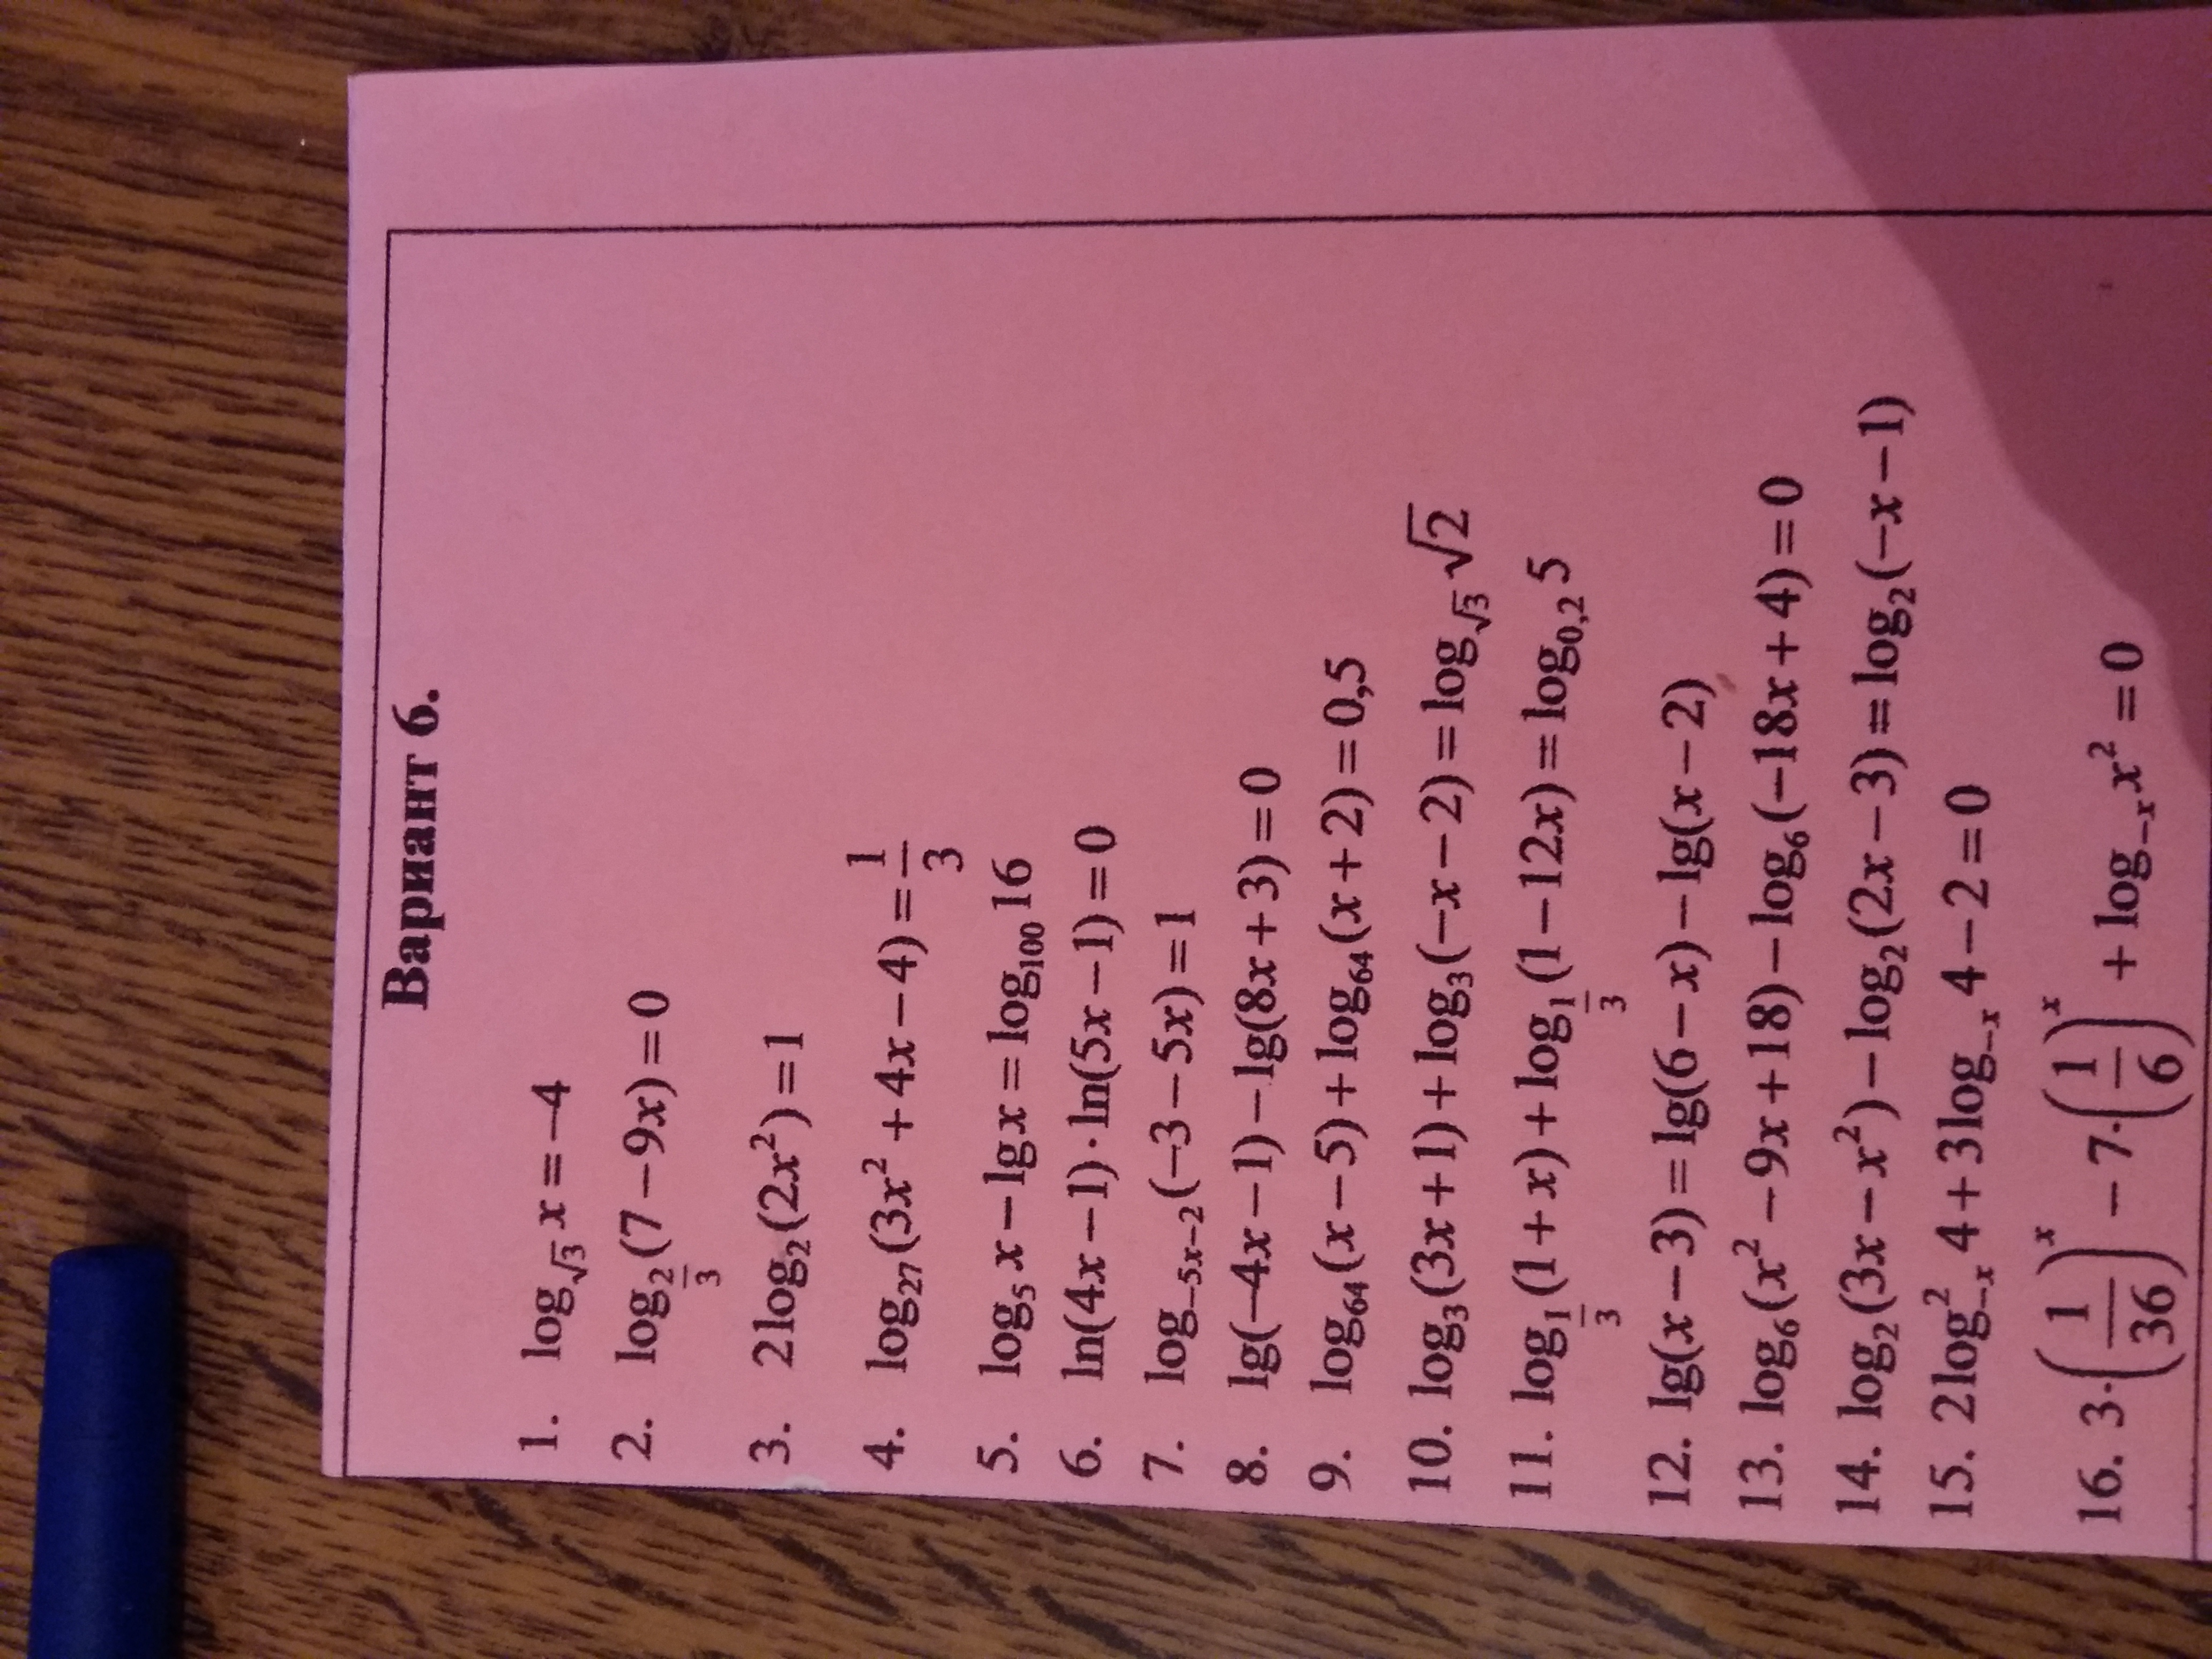 Вариант 6.
1. log_{√3} x = −4
2. log_{2/3} (7 − 9x) = 0
3. 2log_2 (2x²) = 1
4. log_{27} (3x² + 4x − 4) = 1/3
5. log_5 x − lg x = log_{100} 16
6. ln(4x − 1) · ln(5x − 1) = 0
7. log_{−5x−2} (−3 − 5x) = 1
8. lg(−4x − 1) − lg(8x + 3) = 0
9. log_{64} (x − 5) + log_{64} (x + 2) = 0,5
10. log_3 (3x + 1) + log_3 (−x − 2) = log_{√3} √2
11. log_{1/3} (1 + x) + log_{1/3} (1 − 12x) = log_{0,2} 5
12. lg(x − 3) = lg(6 − x) − lg(x − 2)
13. log_6 (x² − 9x + 18) − log_6 (−18x + 4) = 0
14. log_2 (3x − x²) − log_2 (2x − 3) = log_2 (−x − 1)
15. 2log²_{−x} 4 + 3log_{−x} 4 − 2 = 0
16. 3·(1/36)^x − 7·(1/6)^x + log_{−x} x² = 0